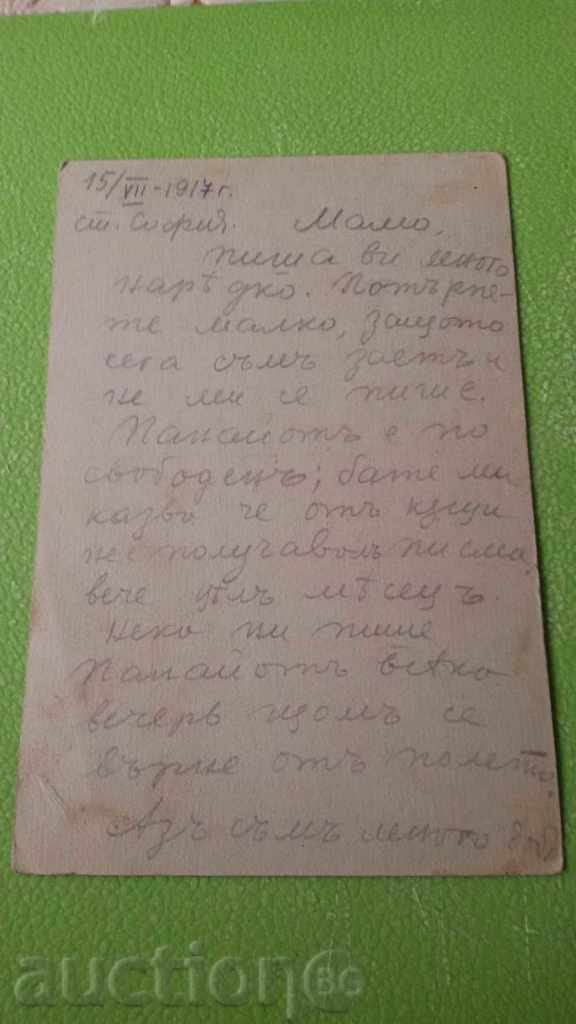 15/VII-1917 г.
ст. София. Мамо,
пиша ви много
нарѣдко. Потърпе-
те малко, защото
сега съмъ заетъ и
не ми се пише.
Панайотъ е по
свободенъ; бате ми
казва че отъ къщи
не получавалъ писма
вече цѣлъ мѣсецъ.
Нека ни пише
Панайотъ всѣка
вечерь щомъ се
върне отъ полето.
Азъ съмъ много
auction BG